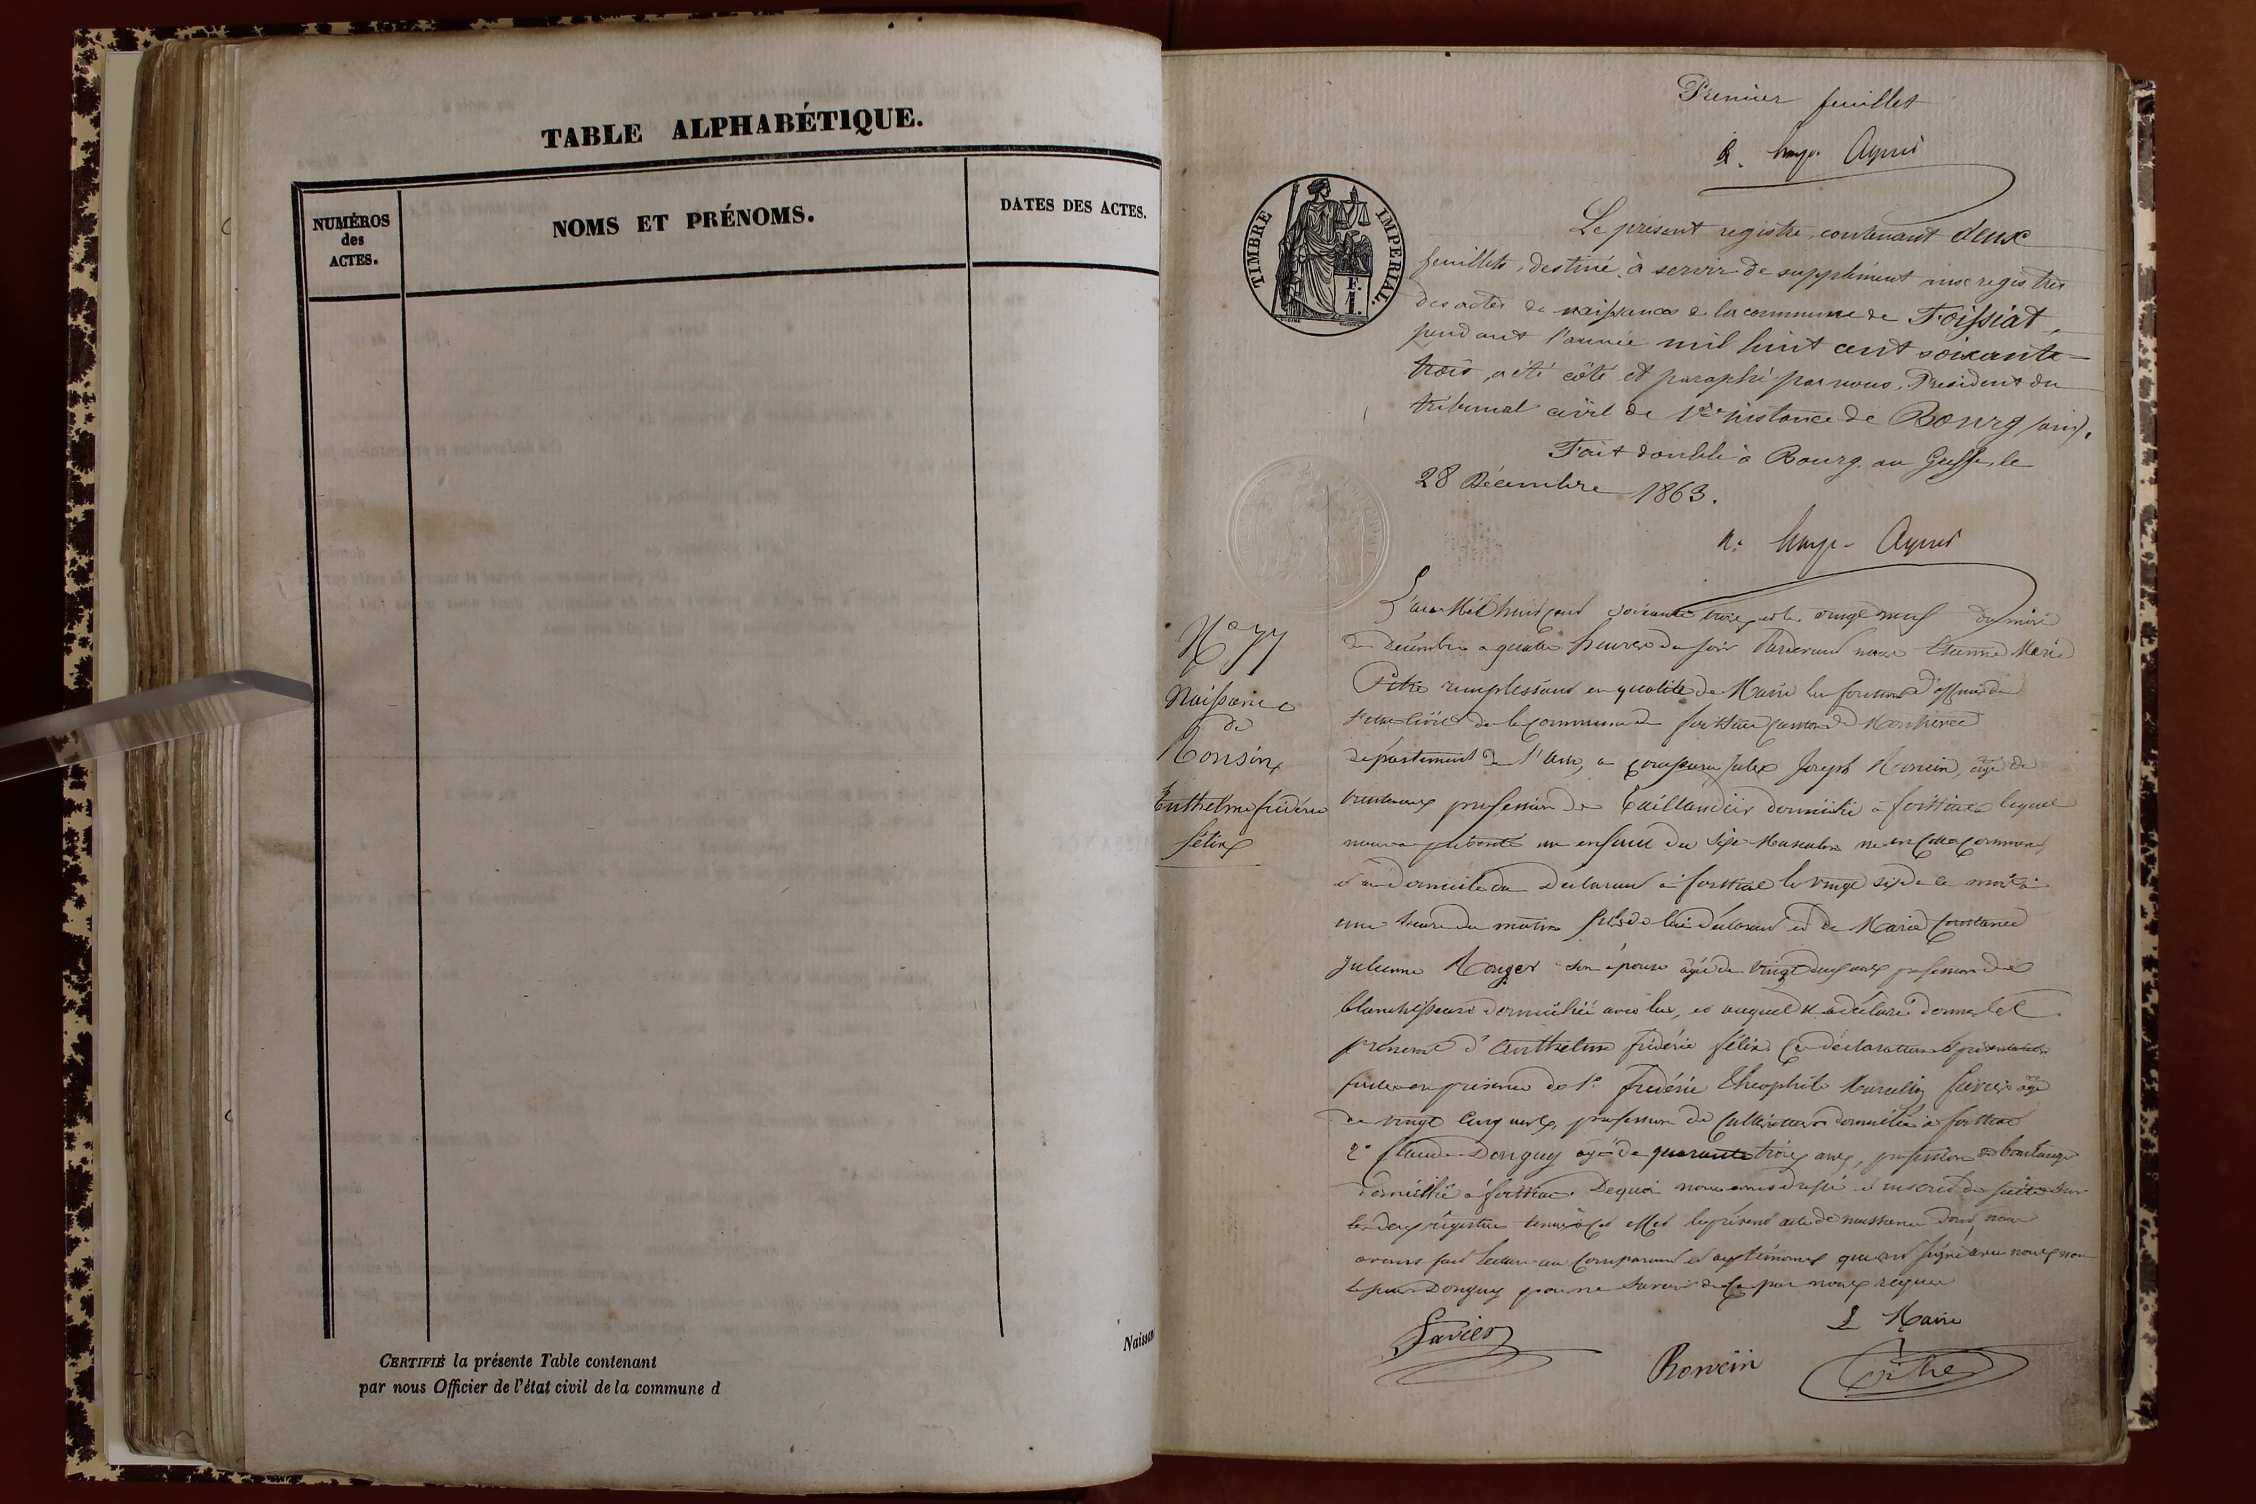 TABLE ALPHABÉTIQUE.
NUMÉROS
des
ACTES.
NOMS ET PRÉNOMS.
DATES DES ACTES.
CERTIFIÉ la présente Table contenant
par nous Officier de l'état civil de la commune d
Naissan
Premier feuillet
TIMBRE IMPERIAL.
F.
1.
Le présent registre, contenant deux
feuillets, destiné à servir de supplément aux registres
des actes de naissances de la commune de Foissiat,
pendant l'année mil huit cent soixante
trois, a été côté et paraphé par nous, Président du
tribunal civil de 1ère instance de Bourg (ain).
Fait double à Bourg, au Greffe, le
28 Décembre 1863.
N° 77
Naissance
de
Ronsin
Enthelme frédéric
félix
L'an Mil huit cent soixante trois et le vingt neuf du mois
de décembre a quatre heures du soir Pardevant nous Etienne Marie
Pitre remplissant en qualité de Maire les fonctions d'officier de
l'état civil de la commune de foissiat canton de Montrevel
département de l'ain, a comparu Jules Joseph Roncin, âgé de
trente ans profession de Taillandier domicilié à foissiat lequel
nous a présenté un enfant du sexe Masculin né en cette commune,
et au domicile du Déclarant à foissiat le vingt six de ce mois à
une heure du matin fils de lui déclarant et de Marie Constance
Julienne Rouger son épouse âgée de vingt deux ans profession de
blanchisseuse domiciliée avec lui, et auquel il a déclaré donner les
prénoms d'Anthelme frédéric félix Ces déclaration et présentation
faites en présence de 1° frédéric théophile Marcellin favier âgé
de vingt cinq ans, profession de Cultivateur domicilié à foissiat
2° Claude Donguy âgé de quarante trois ans, profession de boulanger
domicilié à foissiat. De quoi nous avons dressé et inscrit de suite sur
les deux registres tenus à cet effet le présent acte de naissance dont nous
avons fait lecture au Comparant et aux témoins qui ont signé avec nous non
le sieur Donguy pour ne savoir de ce par nous requis
Le Maire
Favier
Roncin
Pitre